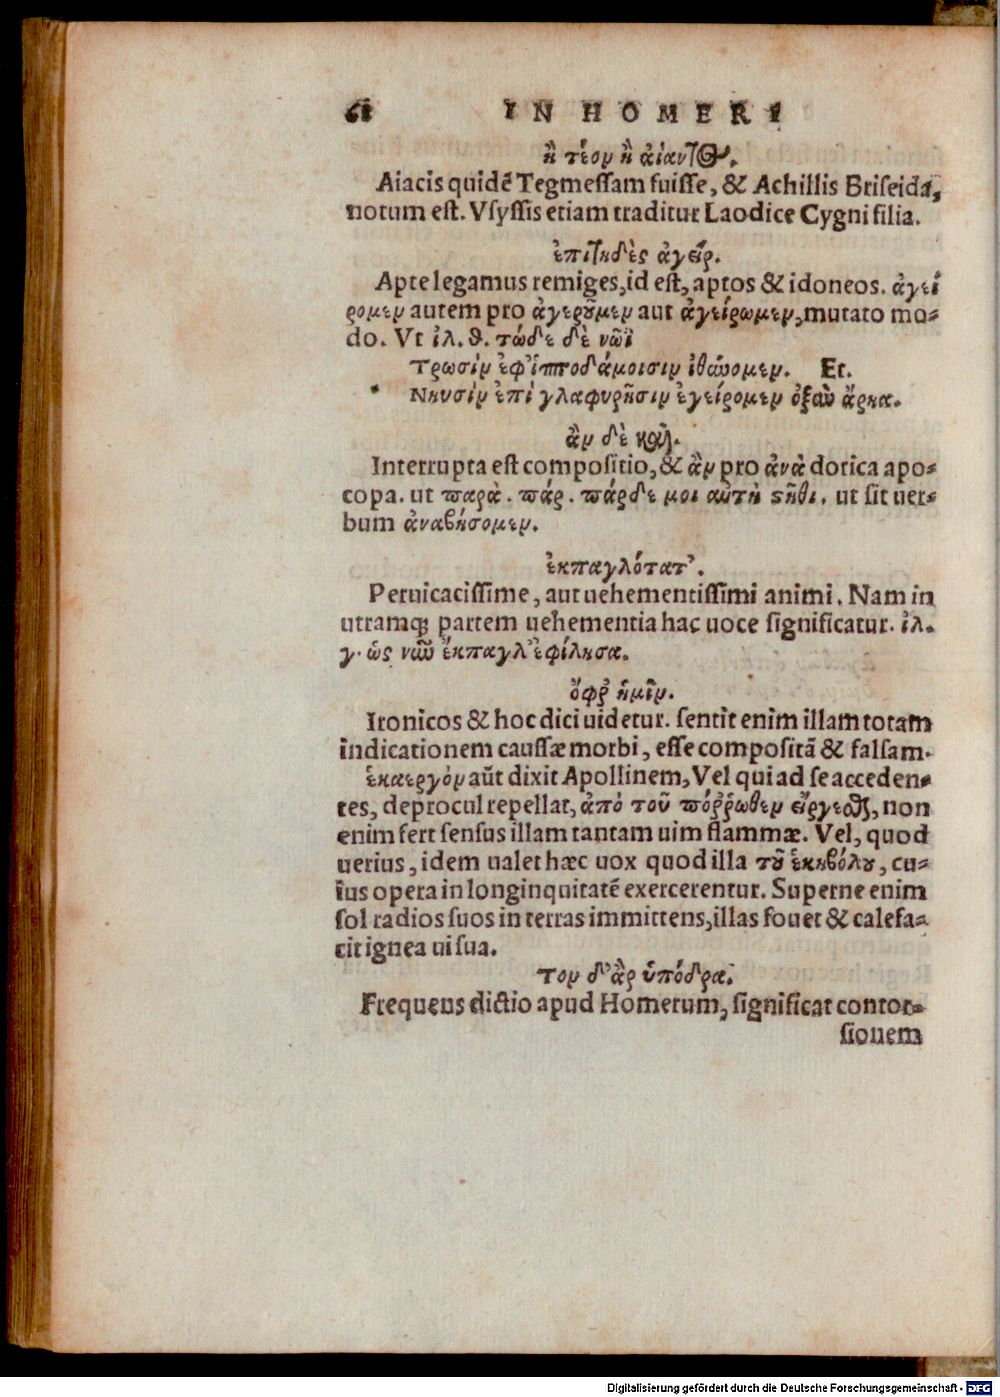 61 IN HOMERI
ἢ τεὸν ἢ αἴαντος.
Aiacis quidē Tegmessam fuisse, & Achillis Briseida,
notum est. Vsyssis etiam traditur Laodice Cygni filia.
ἐπιτηδὲς ἀγείρ.
Apte legamus remiges, id est, aptos & idoneos. ἀγεί
ρομεν autem pro ἀγεροῦμεν aut ἀγείρωμεν, mutato mo-
do. Vt ἰλ. θ. τώδε δὲ νῶϊ
Τρωσὶν ἐφ' ἱπποδάμοισιν ἰθύνομεν. Et.
Νηυσὶν ἐπὶ γλαφυρῇσιν ἐγείρομεν ὀξὺν ἄρηα.
ἂν δὲ καλ.
Interrupta est compositio, & ἂν pro ἀνὰ dorica apo-
copa. ut παρὰ. πάρ. πάρδε μοι αὐτὴ στῆθι. ut sit uer-
bum ἀναβήσομεν.
ἐκπαγλότατ'.
Peruicacissime, aut uehementissimi animi. Nam in
utramq; partem uehementia hac uoce significatur. ἰλ.
γ. ὡς νῦν ἔκπαγλ' ἐφίλησα.
ὄφρ ἡμῖν.
Ironicos & hoc dici uidetur. sentit enim illam totam
indicationem caussæ morbi, esse compositā & falsam.
ἑκαεργὸν aūt dixit Apollinem, Vel qui ad se acceden-
tes, de procul repellat, ἀπὸ τοῦ πόρρωθεν εἴργεσθαι, non
enim fert sensus illam tantam uim flammæ. Vel, quod
uerius, idem ualet hæc uox quod illa τοῦ ἑκηβόλου, cu-
ius opera in longinquitatē exercerentur. Superne enim
sol radios suos in terras immittens, illas fouet & calefa-
cit ignea ui sua.
τὸν δ' ἂρ ὑπόδρα.
Frequens dictio apud Homerum, significat contor-
sionem
Digitalisierung gefördert durch die Deutsche Forschungsgemeinschaft - DFG